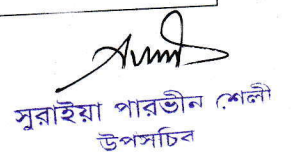 সুরাইয়া পারভীন শেলী
উপসচিব